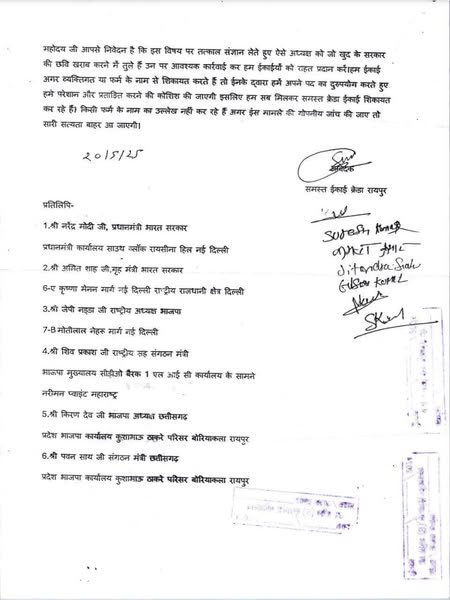 महोदय जी आपसे निवेदन है कि इस विषय पर तत्काल संज्ञान लेते हुए ऐसे अध्यक्ष को जो खुद के सरकार
की छवि खराब करने में तुले हैं उन पर आवश्यक कार्रवाई कर हम ईकाईयों को राहत प्रदान करें।हम ईकाई
अगर व्यक्तिगत या फर्म के नाम से शिकायत करते हैं तो ईनके द्वारा हमें अपने पद का दुरुपयोग करते हुए
हमे परेशान और प्रताड़ित करने की कोशिश की जाएगी इसलिए हम सब मिलकर समस्त क्रेडा ईकाई शिकायत
कर रहे हैं। किसी फर्म के नाम का उल्लेख नहीं कर रहे हैं अगर इस मामले की गोपनीय जांच की जाए तो
सारी सत्यता बाहर आ जाएगी।
20/5/25
आवेदक
समस्त ईकाई क्रेडा रायपुर
प्रतिलिपि-
1.श्री नरेंद्र मोदी जी, प्रधानमंत्री भारत सरकार
प्रधानमंत्री कार्यालय साउथ ब्लॉक रायसीना हिल नई दिल्ली
2.श्री अमित शाह जी,गृह मंत्री भारत सरकार
6-ए कृष्णा मेनन मार्ग नई दिल्ली राष्ट्रीय राजधानी क्षेत्र दिल्ली
3.श्री जेपी नड्डा जी राष्ट्रीय अध्यक्ष भाजपा
7-B मोतीलाल नेहरू मार्ग नई दिल्ली
4.श्री शिव प्रकाश जी राष्ट्रीय सह संगठन मंत्री
भाजपा मुख्यालय सीडीओ बैरक 1 एल आई सी कार्यालय के सामने
नरीमन प्वाइंट महाराष्ट्र
5.श्री किरण देव जी भाजपा अध्यक्ष छत्तीसगढ़
प्रदेश भाजपा कार्यालय कुशाभाऊ ठाकरे परिसर बोरियाकला रायपुर
6.श्री पवन साय जी संगठन मंत्री छत्तीसगढ़
प्रदेश भाजपा कार्यालय कुशाभाऊ ठाकरे परिसर बोरियाकला रायपुर